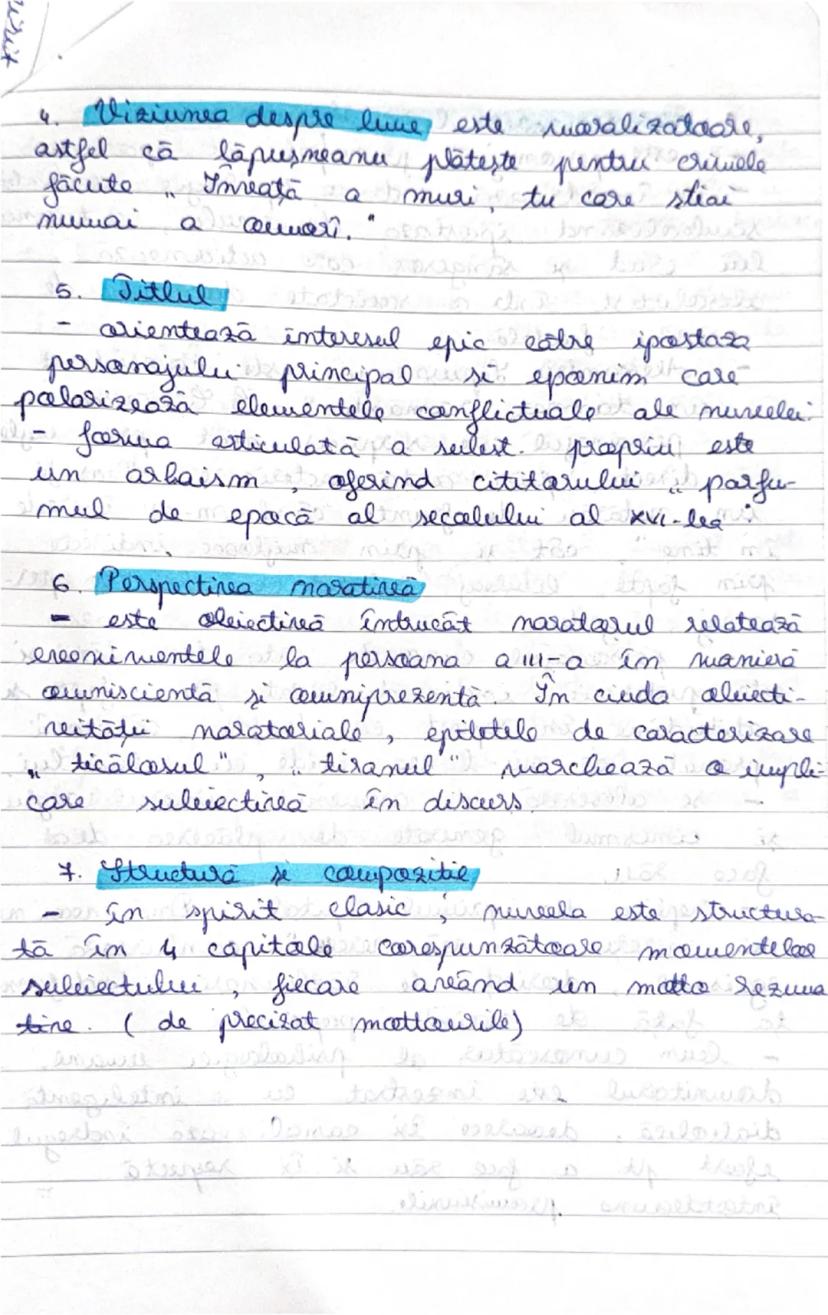 4. Viziunea despre lume este moralizatoare,
astfel că lăpușneanu plătește pentru crimele
făcute „Învață a muri, tu care știai
numai a omorî."
5. Titlul
- orientează interesul epic către ipostaza
personajului principal si eponim care
polarizează elementele conflictuale ale nuvelei.
- forma articulată a subst. propriu este
un arhaism, oferind cititorului „parfu-
mul de epocă al secolului al XVI-lea"
6. Perspectiva narativă
- este obiectivă întrucât naratorul relatează
evenimentele la persoana a III-a în manieră
omniscientă și omniprezentă. În ciuda obiecti-
vității naratoriale, epitetele de caracterizare
„ticălosul", „tiranul" marchează o impli-
care subiectivă în discurs.
7. Structură si compozitie
- în spirit clasic, nuvela este structura-
tă în 4 capitole corespunzătoare momentelor
subiectului, fiecare având un motto rezuma
tive. ( de precizat mottourile)